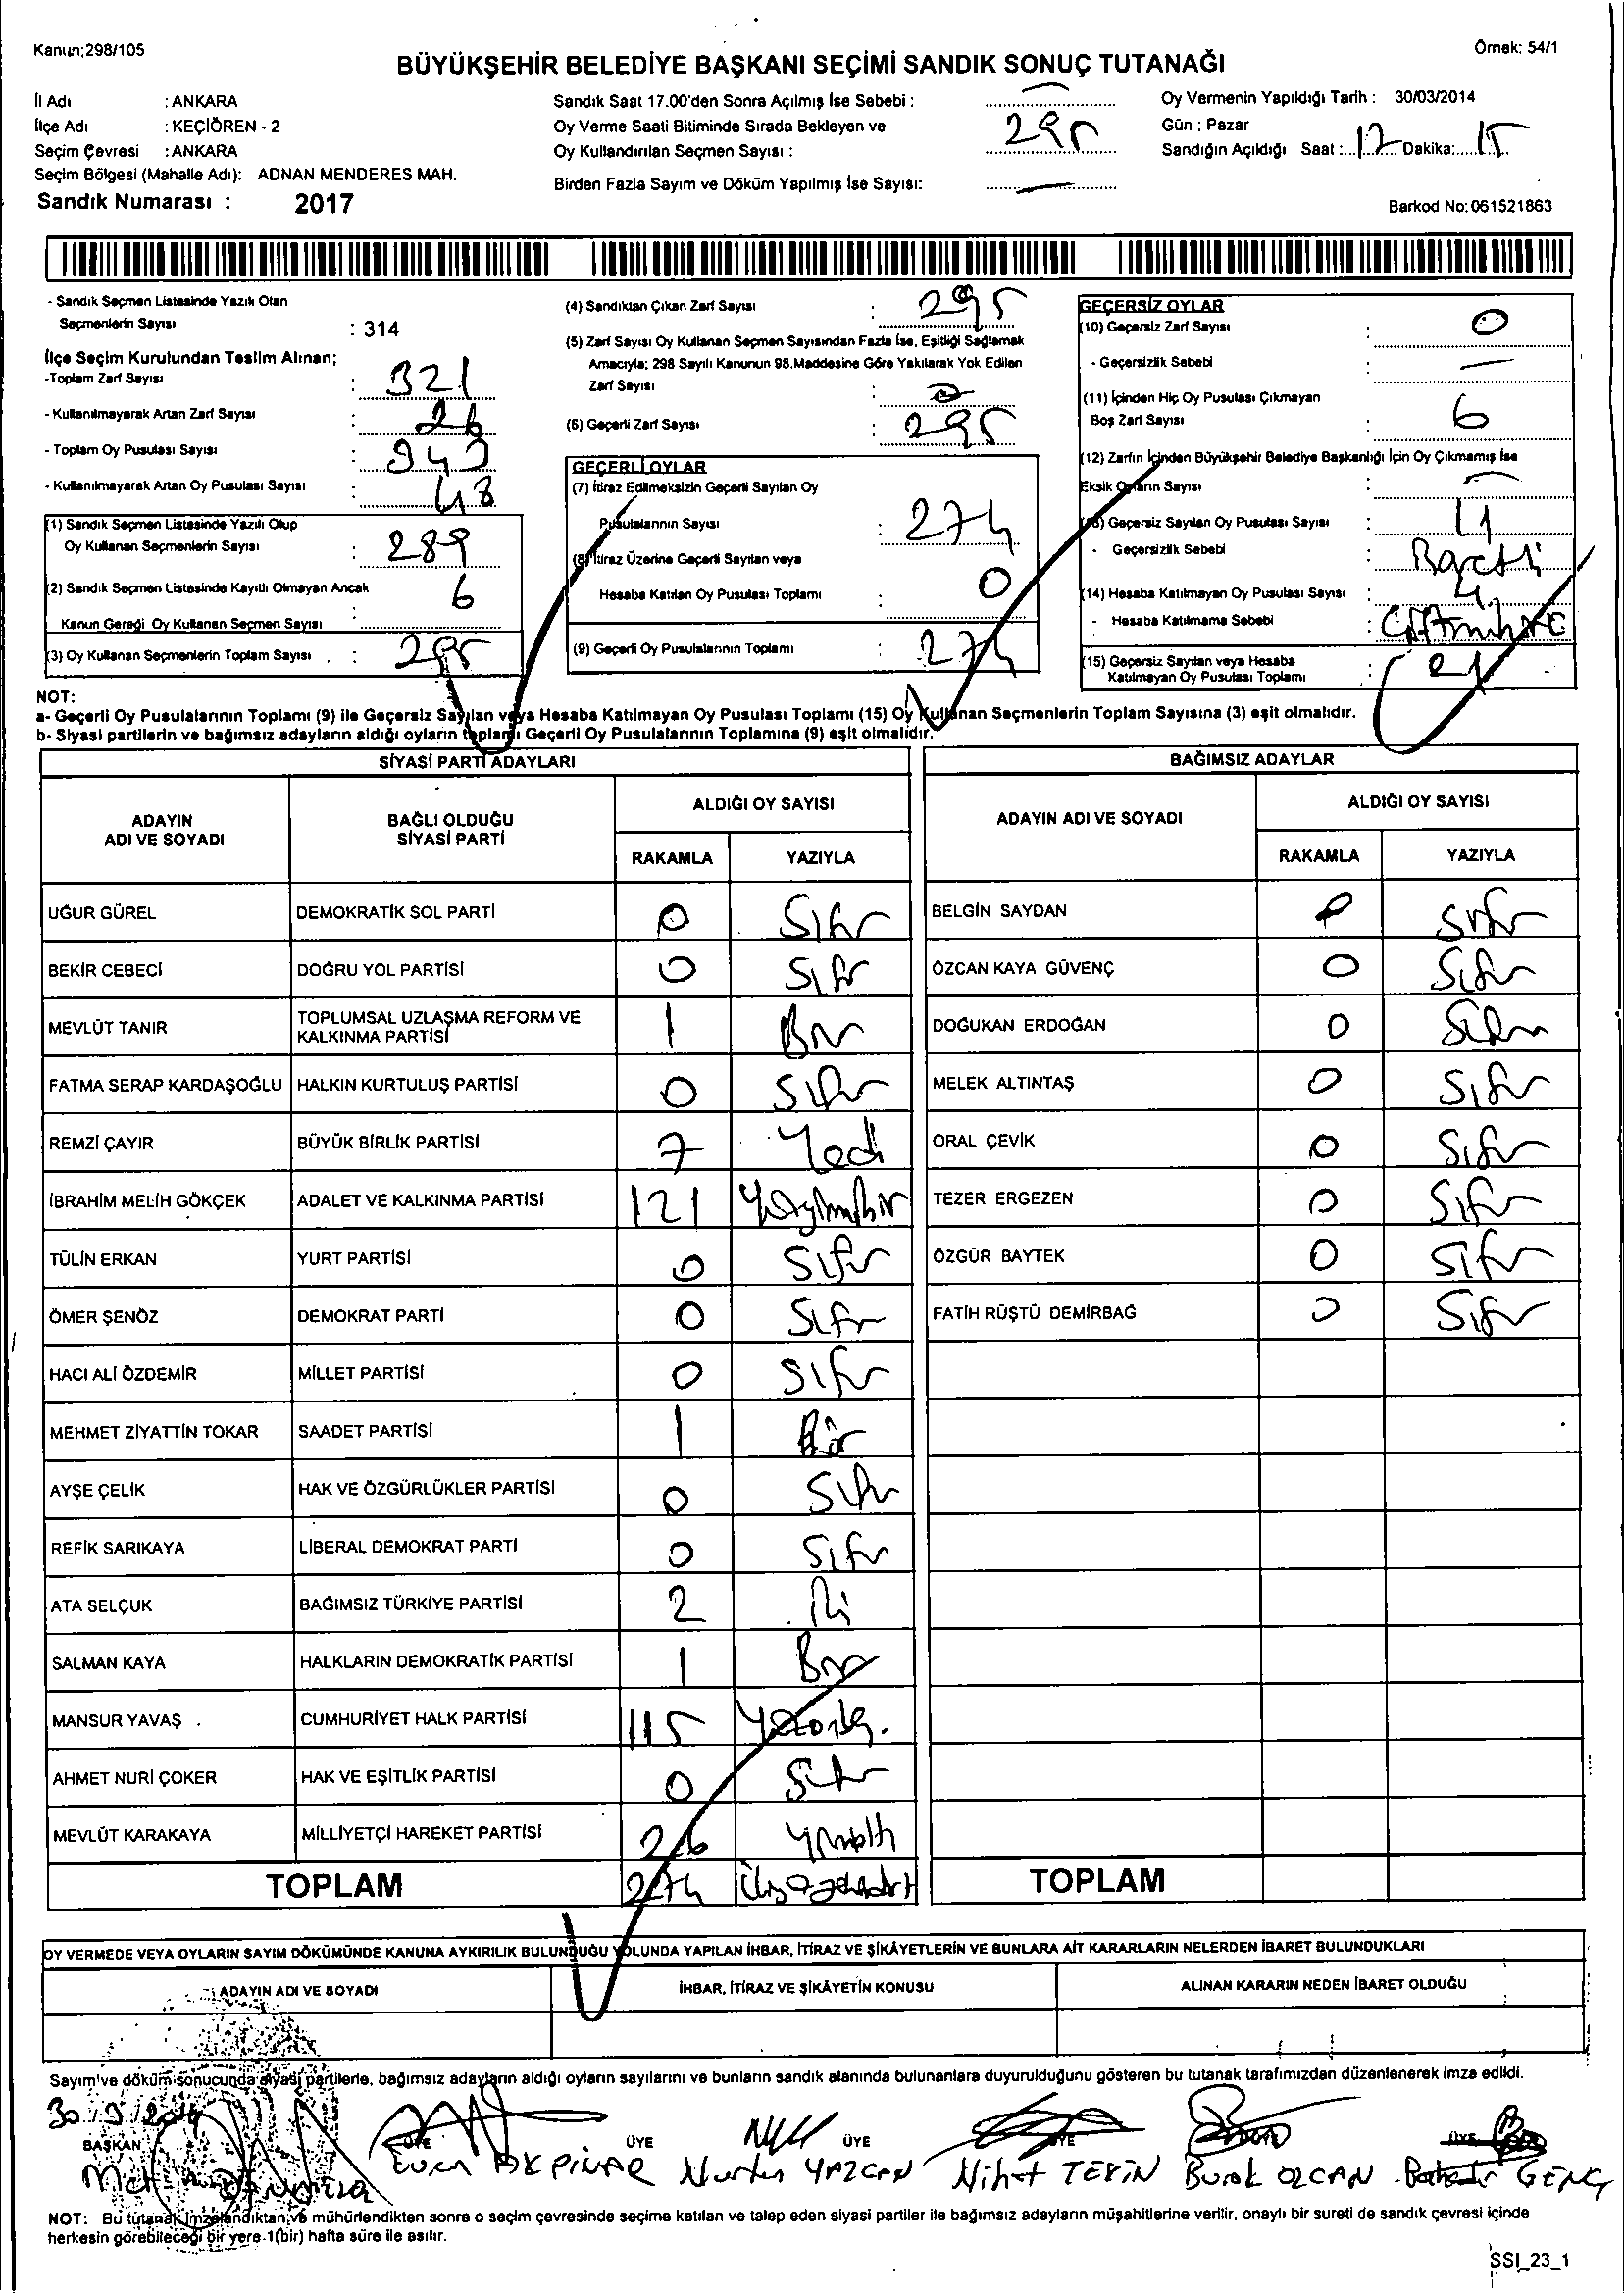 Kanun;298/105
Örnek: 54/1
BÜYÜKŞEHİR BELEDİYE BAŞKANI SEÇİMİ SANDIK SONUÇ TUTANAĞI
İl Adı : ANKARA
İlçe Adı : KEÇİÖREN - 2
Seçim Çevresi : ANKARA
Seçim Bölgesi (Mahalle Adı): ADNAN MENDERES MAH.
Sandık Numarası : 2017
Sandık Saat 17.00'den Sonra Açılmış İse Sebebi : —
Oy Verme Saati Bitiminde Sırada Bekleyen ve
Oy Kullandırılan Seçmen Sayısı : 295
Birden Fazla Sayım ve Döküm Yapılmış İse Sayısı: —
Oy Vermenin Yapıldığı Tarih : 30/03/2014
Gün : Pazar
Sandığın Açıldığı Saat : 17 Dakika: 15
Barkod No: 061521863
- Sandık Seçmen Listesinde Yazılı Olan
Seçmenlerin Sayısı : 314
İlçe Seçim Kurulundan Teslim Alınan;
-Toplam Zarf Sayısı : 321
- Kullanılmayarak Artan Zarf Sayısı : 26
- Toplam Oy Pusulası Sayısı : 343
- Kullanılmayarak Artan Oy Pusulası Sayısı : 48
(1) Sandık Seçmen Listesinde Yazılı Olup
Oy Kullanan Seçmenlerin Sayısı : 289
(2) Sandık Seçmen Listesinde Kayıtlı Olmayan Ancak
Kanun Gereği Oy Kullanan Seçmen Sayısı : 6
(3) Oy Kullanan Seçmenlerin Toplam Sayısı : 295
(4) Sandıktan Çıkan Zarf Sayısı : 295
(5) Zarf Sayısı Oy Kullanan Seçmen Sayısından Fazla İse, Eşitliği Sağlamak
Amacıyla; 298 Sayılı Kanunun 98.Maddesine Göre Yakılarak Yok Edilen
Zarf Sayısı : 0
(6) Geçerli Zarf Sayısı : 295
GEÇERLİ OYLAR
(7) İtiraz Edilmeksizin Geçerli Sayılan Oy
Pusulalarının Sayısı : 274
(8) İtiraz Üzerine Geçerli Sayılan veya
Hesaba Katılan Oy Pusulası Toplamı : 0
(9) Geçerli Oy Pusulalarının Toplamı : 274
GEÇERSİZ OYLAR
(10) Geçersiz Zarf Sayısı : 0
- Geçersizlik Sebebi : —
(11) İçinden Hiç Oy Pusulası Çıkmayan
Boş Zarf Sayısı : 6
(12) Zarfın İçinden Büyükşehir Belediye Başkanlığı İçin Oy Çıkmamış İse
Eksik Oyların Sayısı : —
(13) Geçersiz Sayılan Oy Pusulası Sayısı : 11
- Geçersizlik Sebebi :
(14) Hesaba Katılmayan Oy Pusulası Sayısı : 4
- Hesaba Katılmama Sebebi :
(15) Geçersiz Sayılan veya Hesaba
Katılmayan Oy Pusulası Toplamı : 21
NOT:
a- Geçerli Oy Pusulalarının Toplamı (9) ile Geçersiz Sayılan veya Hesaba Katılmayan Oy Pusulası Toplamı (15) Oy Kullanan Seçmenlerin Toplam Sayısına (3) eşit olmalıdır.
b- Siyasi partilerin ve bağımsız adayların aldığı oyların toplamı Geçerli Oy Pusulalarının Toplamına (9) eşit olmalıdır.
SİYASİ PARTİ ADAYLARI
ADAYIN ADI VE SOYADI BAĞLI OLDUĞU SİYASİ PARTİ ALDIĞI OY SAYISI
RAKAMLA YAZIYLA
UĞUR GÜREL DEMOKRATİK SOL PARTİ 0 Sıfır
BEKİR CEBECİ DOĞRU YOL PARTİSİ 0 Sıfır
MEVLÜT TANIR TOPLUMSAL UZLAŞMA REFORM VE KALKINMA PARTİSİ 1 Bir
FATMA SERAP KARDAŞOĞLU HALKIN KURTULUŞ PARTİSİ 0 Sıfır
REMZİ ÇAYIR BÜYÜK BİRLİK PARTİSİ 7 Yedi
İBRAHİM MELİH GÖKÇEK ADALET VE KALKINMA PARTİSİ 121 Yüzyirmibir
TÜLİN ERKAN YURT PARTİSİ 0 Sıfır
ÖMER ŞENÖZ DEMOKRAT PARTİ 0 Sıfır
HACI ALİ ÖZDEMİR MİLLET PARTİSİ 0 Sıfır
MEHMET ZİYATTİN TOKAR SAADET PARTİSİ 1 Bir
AYŞE ÇELİK HAK VE ÖZGÜRLÜKLER PARTİSİ 0 Sıfır
REFİK SARIKAYA LİBERAL DEMOKRAT PARTİ 0 Sıfır
ATA SELÇUK BAĞIMSIZ TÜRKİYE PARTİSİ 2 İki
SALMAN KAYA HALKLARIN DEMOKRATİK PARTİSİ 1 Bir
MANSUR YAVAŞ CUMHURİYET HALK PARTİSİ 115 Yüzonbş.
AHMET NURİ ÇOKER HAK VE EŞİTLİK PARTİSİ 0 Sıfır
MEVLÜT KARAKAYA MİLLİYETÇİ HAREKET PARTİSİ 26 Yirmialtı
TOPLAM 274
BAĞIMSIZ ADAYLAR
ADAYIN ADI VE SOYADI ALDIĞI OY SAYISI
RAKAMLA YAZIYLA
BELGİN SAYDAN 0 Sıfır
ÖZCAN KAYA GÜVENÇ 0 Sıfır
DOĞUKAN ERDOĞAN 0 Sıfır
MELEK ALTINTAŞ 0 Sıfır
ORAL ÇEVİK 0 Sıfır
TEZER ERGEZEN 0 Sıfır
ÖZGÜR BAYTEK 0 Sıfır
FATİH RÜŞTÜ DEMİRBAĞ 0 Sıfır
TOPLAM
OY VERMEDE VEYA OYLARIN SAYIM DÖKÜMÜNDE KANUNA AYKIRILIK BULUNDUĞU YOLUNDA YAPILAN İHBAR, İTİRAZ VE ŞİKÂYETLERİN VE BUNLARA AİT KARARLARIN NELERDEN İBARET BULUNDUKLARI
ADAYIN ADI VE SOYADI İHBAR, İTİRAZ VE ŞİKÂYETİN KONUSU ALINAN KARARIN NEDEN İBARET OLDUĞU
Sayım ve döküm sonucunda siyasi partilerle, bağımsız adayların aldığı oyların sayılarını ve bunların sandık alanında bulunanlara duyurulduğunu gösteren bu tutanak tarafımızdan düzenlenerek imza edildi.
30/3/2014
BAŞKAN ÜYE ÜYE ÜYE ÜYE ÜYE
AKPINAR Nurten YAZCAN Nihat TEKİN Burak OZCAN GENÇ
NOT: Bu tutanak imzalandıktan ve mühürlendikten sonra o seçim çevresinde seçime katılan ve talep eden siyasi partiler ile bağımsız adayların müşahitlerine verilir, onaylı bir sureti de sandık çevresi içinde
herkesin görebileceği bir yere 1(bir) hafta süre ile asılır.
SSI_23_1